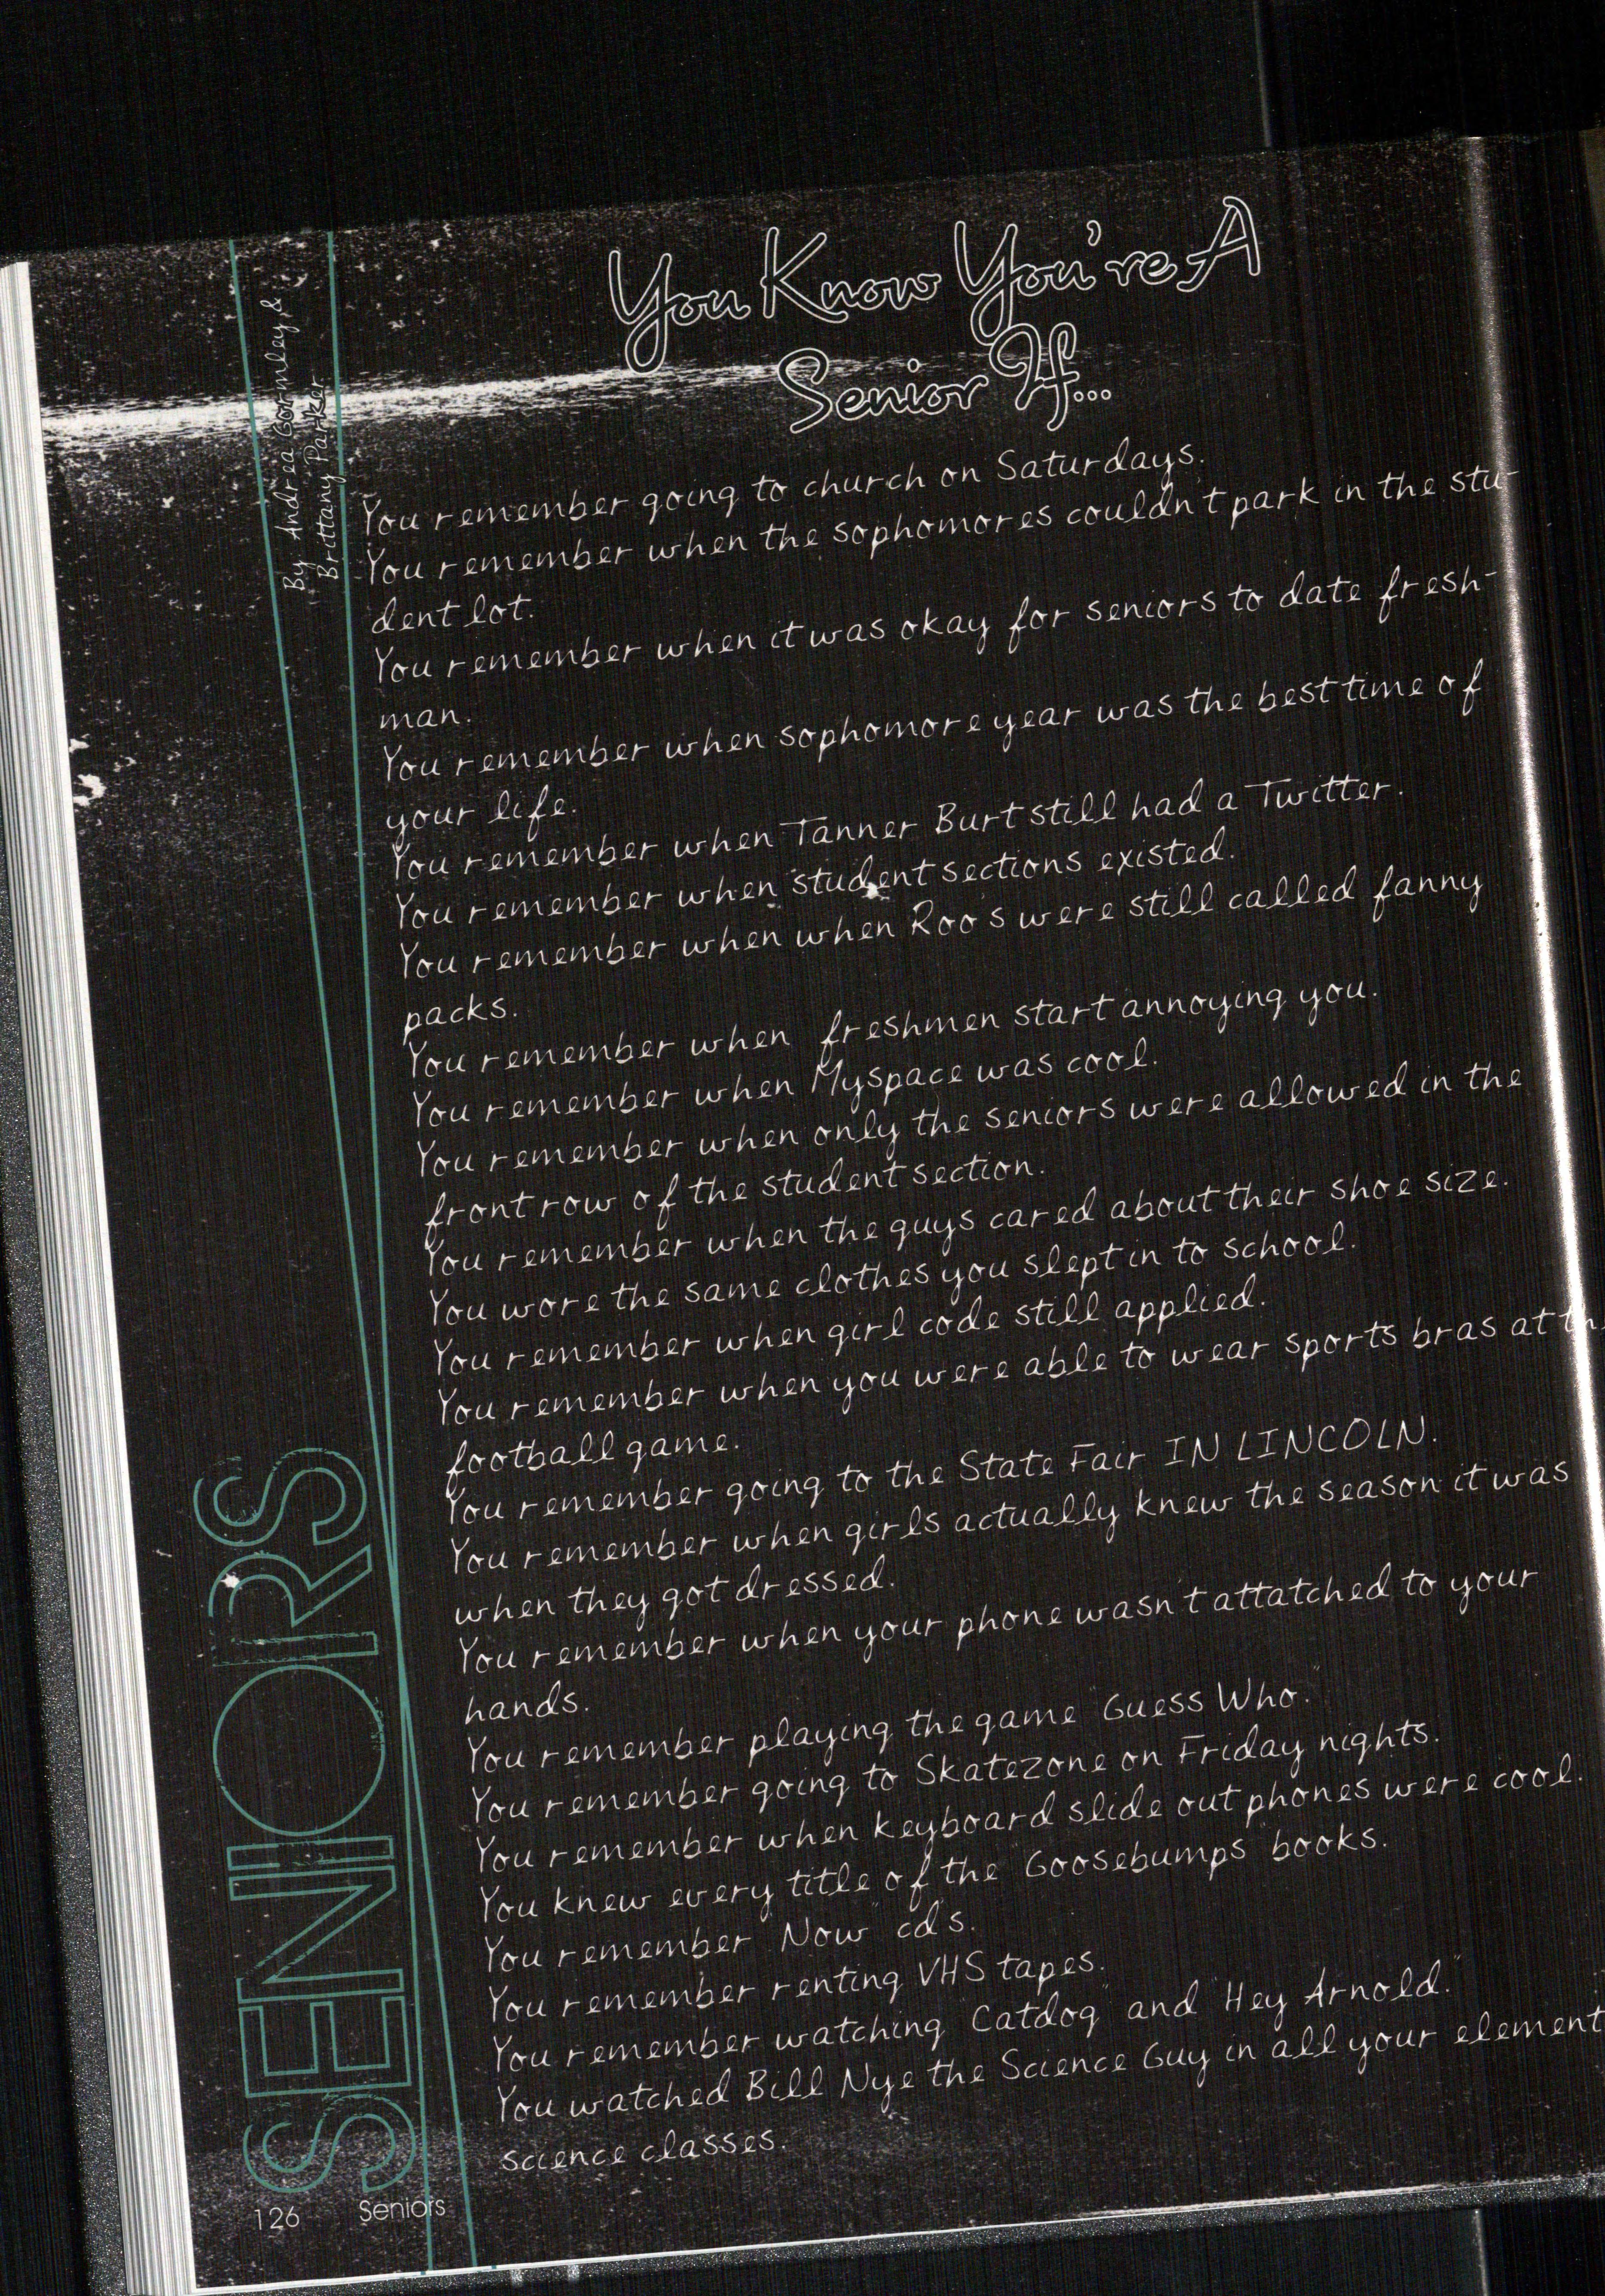 You Know You're A
Senior If...
By Andrea Gormley &
Brittany Parker
You remember going to church on Saturdays.
You remember when the sophomores couldn't park in the stu-
dent lot.
You remember when it was okay for seniors to date fresh-
man.
You remember when sophomore year was the best time of
your life.
You remember when Tanner Burt still had a Twitter.
You remember when student sections existed.
You remember when when Roo's were still called fanny
packs.
You remember when freshmen start annoying you.
You remember when Myspace was cool.
You remember when only the seniors were allowed in the
front row of the student section.
You remember when the guys cared about their shoe size.
You wore the same clothes you slept in to school.
You remember when girl code still applied.
You remember when you were able to wear sports bras at th
football game.
You remember going to the State Fair IN LINCOLN.
You remember when girls actually knew the season it was
when they got dressed.
You remember when your phone wasn't attatched to your
hands.
You remember playing the game "Guess Who."
You remember going to Skatezone on Friday nights.
You remember when keyboard slide out phones were cool.
You knew every title of the "Goosebumps" books.
You remember "Now" cd's.
You remember renting VHS tapes.
You remember watching "Catdog" and "Hey Arnold."
You watched Bill Nye the Science Guy in all your element
science classes.
SENIORS
126 Seniors